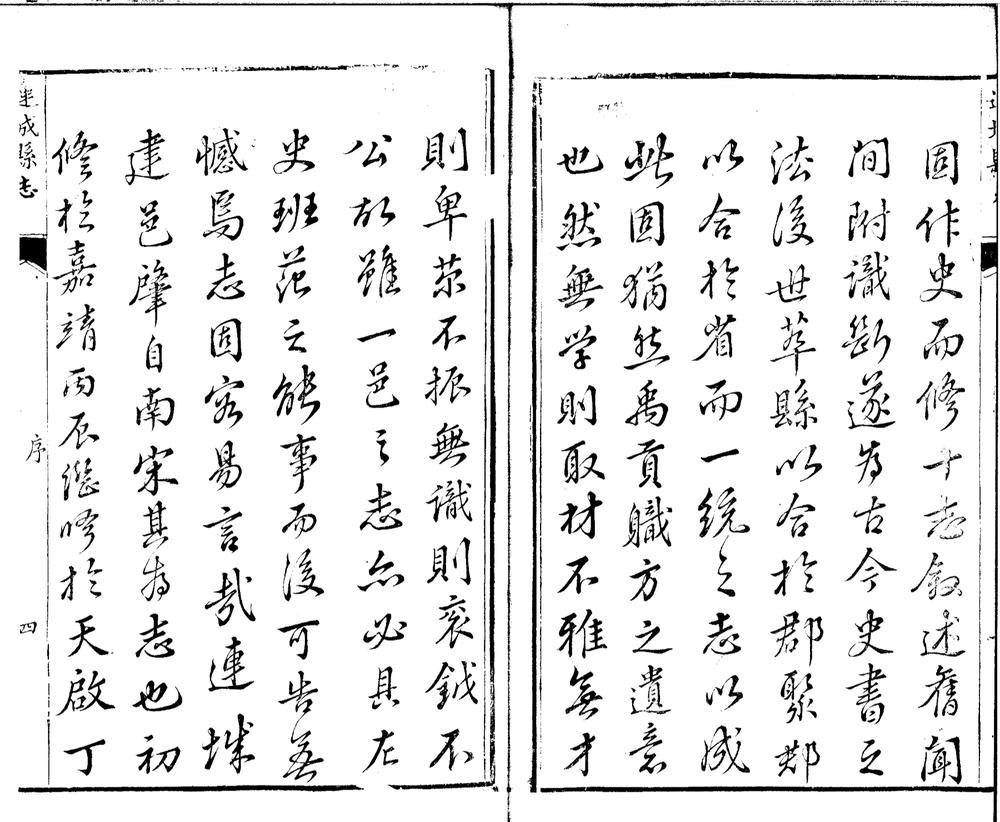 固作史而修十志叙述舊聞
間附識斷遂為古今史書之
法後世萃縣以合於郡聚郡
以合於省而一統之志以成
此固猶然禹貢職方之遺意
也然無学則取材不雅無才
則卑苶不振無識則衮鉞不
公故雖一邑之志亦必具左
史班范之能事而後可告無
憾焉志固容易言哉連城
建邑肇自南宋其為志也初
修於嘉靖丙辰繼修於天啟丁
連城縣志
序
四